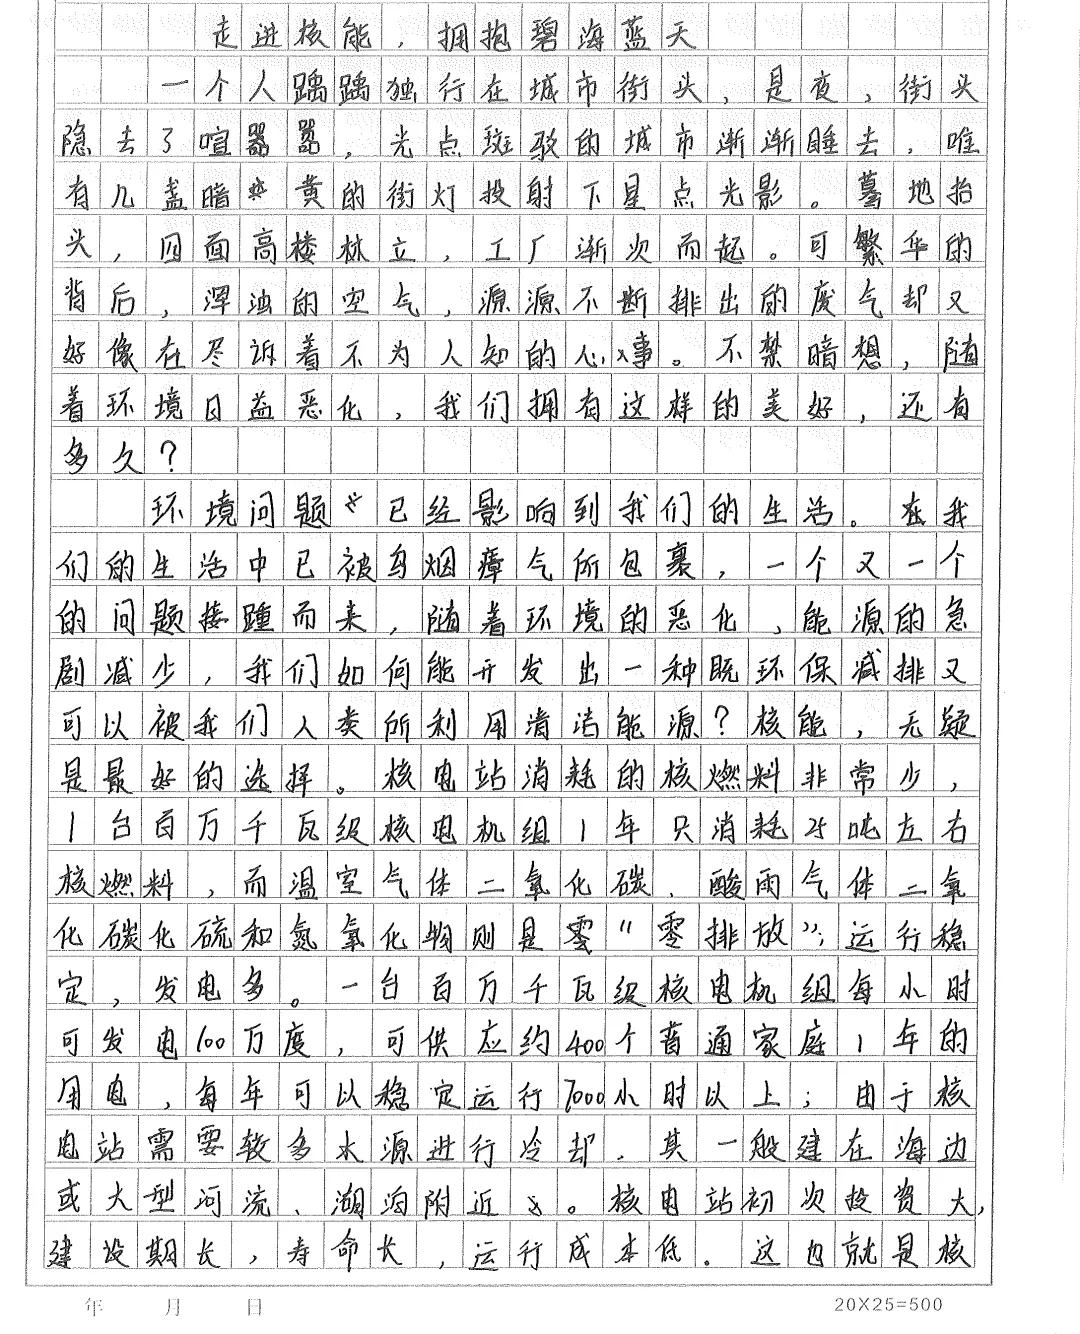 走进核能，拥抱碧海蓝天
一个人踽踽独行在城市街头，是夜，街头
隐去了喧嚣嚣，光点斑驳的城市渐渐睡去，唯
有几盏暗黄的街灯投射下星点光影。蓦地抬
头，四面高楼林立，工厂渐次而起。可繁华的
背后，浑浊的空气，源源不断排出的废气却又
好像在尽诉着不为人知的心事。不禁暗想，随
着环境日益恶化，我们拥有这样的美好，还有
多久？
环境问题已经影响到我们的生活。在我
们的生活中已被乌烟瘴气所包裹，一个又一个
的问题接踵而来，随着环境的恶化，能源的急
剧减少，我们如何能开发出一种既环保减排又
可以被我们人类所利用清洁能源？核能，无疑
是最好的选择。核电站消耗的核燃料非常少，
1台百万千瓦级核电机组1年只消耗25吨左右
核燃料，而温室气体二氧化碳、酸雨气体二氧
化碳化硫和氮氧化物则是零“零排放”；运行稳
定，发电多。一台百万千瓦级核电机组每小时
可发电100万度，可供应约400个普通家庭1年的
用电，每年可以稳定运行7000小时以上；由于核
电站需要较多水源进行冷却，其一般建在海边
或大型河流、湖泊附近。核电站初次投资大，
建设期长，寿命长，运行成本低。这也就是核
年 月 日
20X25=500